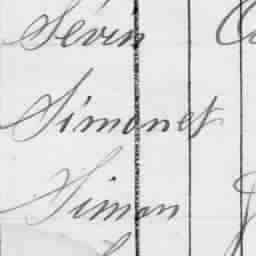 Sévin
Simonet
Simon